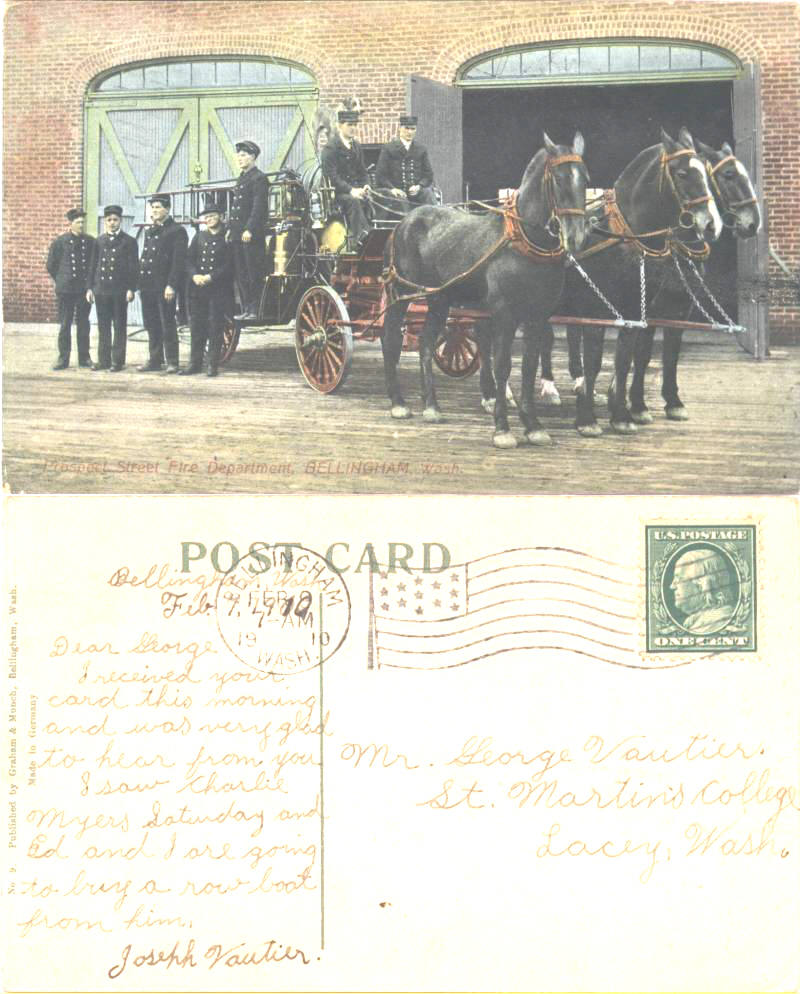 Prospect Street Fire Department, BELLINGHAM, Wash.
POST CARD
U.S. POSTAGE
ONE CENT
BELLINGHAM
FEB 9
7-AM
1910
WASH.
No 9. Published by Graham & Munch, Bellingham, Wash.
Made in Germany
Bellingham, Wash
Feb. 7, 1910
Dear George
I received your
card this morning
and was very glad
to hear from you
I saw Charlie
Myers Saturday and
Ed and I are going
to buy a row boat
from him.
Joseph Vautier.
Mr. George Vautier.
St. Martin's College
Lacey, Wash.